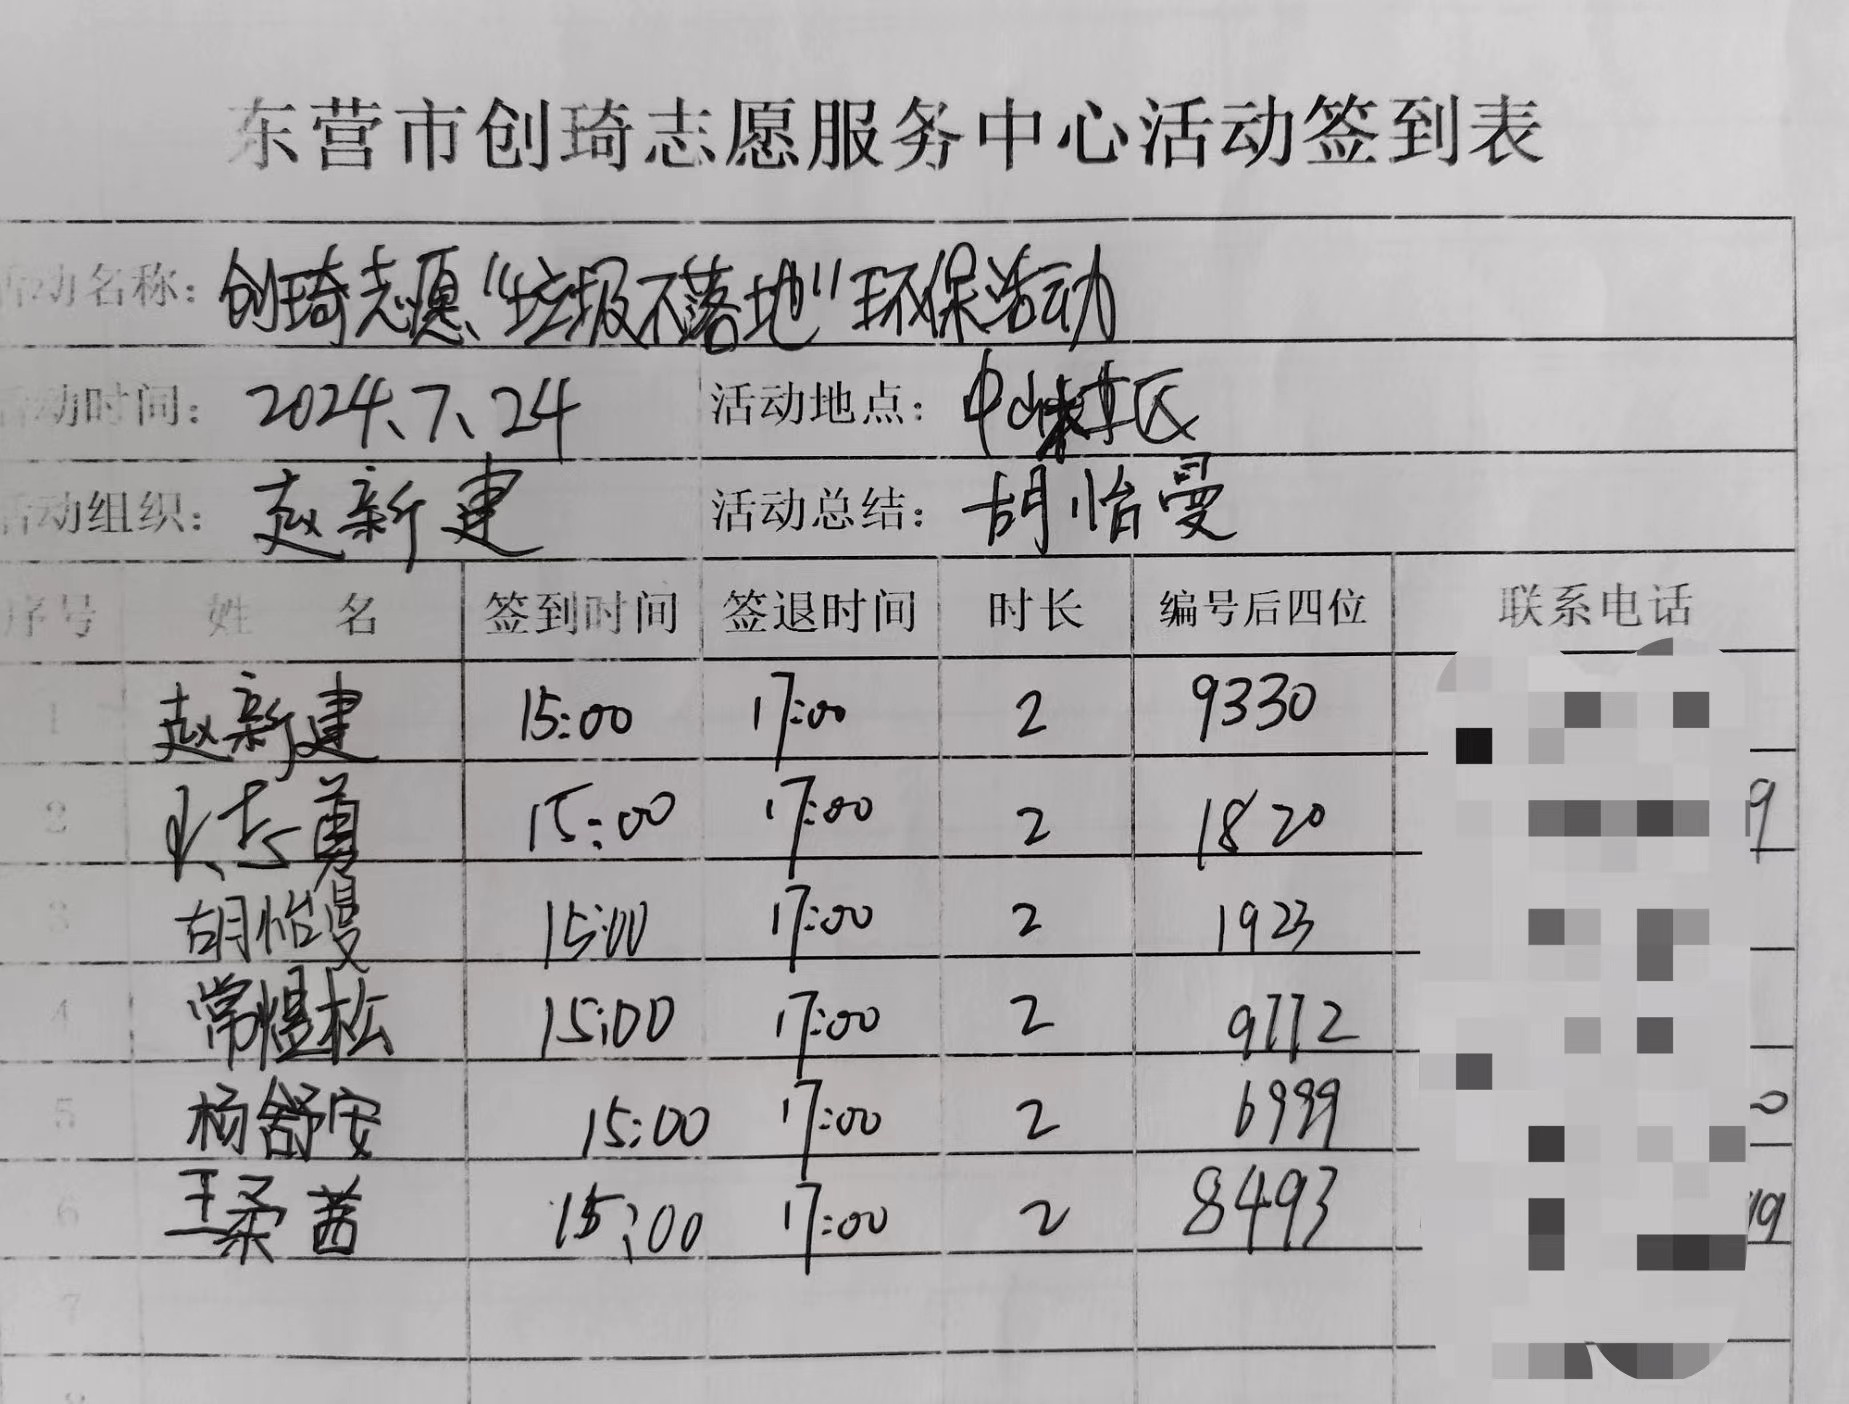 东营市创琦志愿服务中心活动签到表
活动名称：创琦志愿“垃圾不落地”环保活动
活动时间：2024、7、24 活动地点：中山社区
活动组织：赵新建 活动总结：胡怡曼
序号 姓名 签到时间 签退时间 时长 编号后四位 联系电话
1 赵新建 15:00 17:00 2 9330
2 15:00 17:00 2 1820 9
3 胡怡曼 15:00 17:00 2 1923
4 常煜松 15:00 17:00 2 9772
5 杨舒安 15:00 17:00 2 6999
6 王柔茜 15:00 17:00 2 8493 19
7